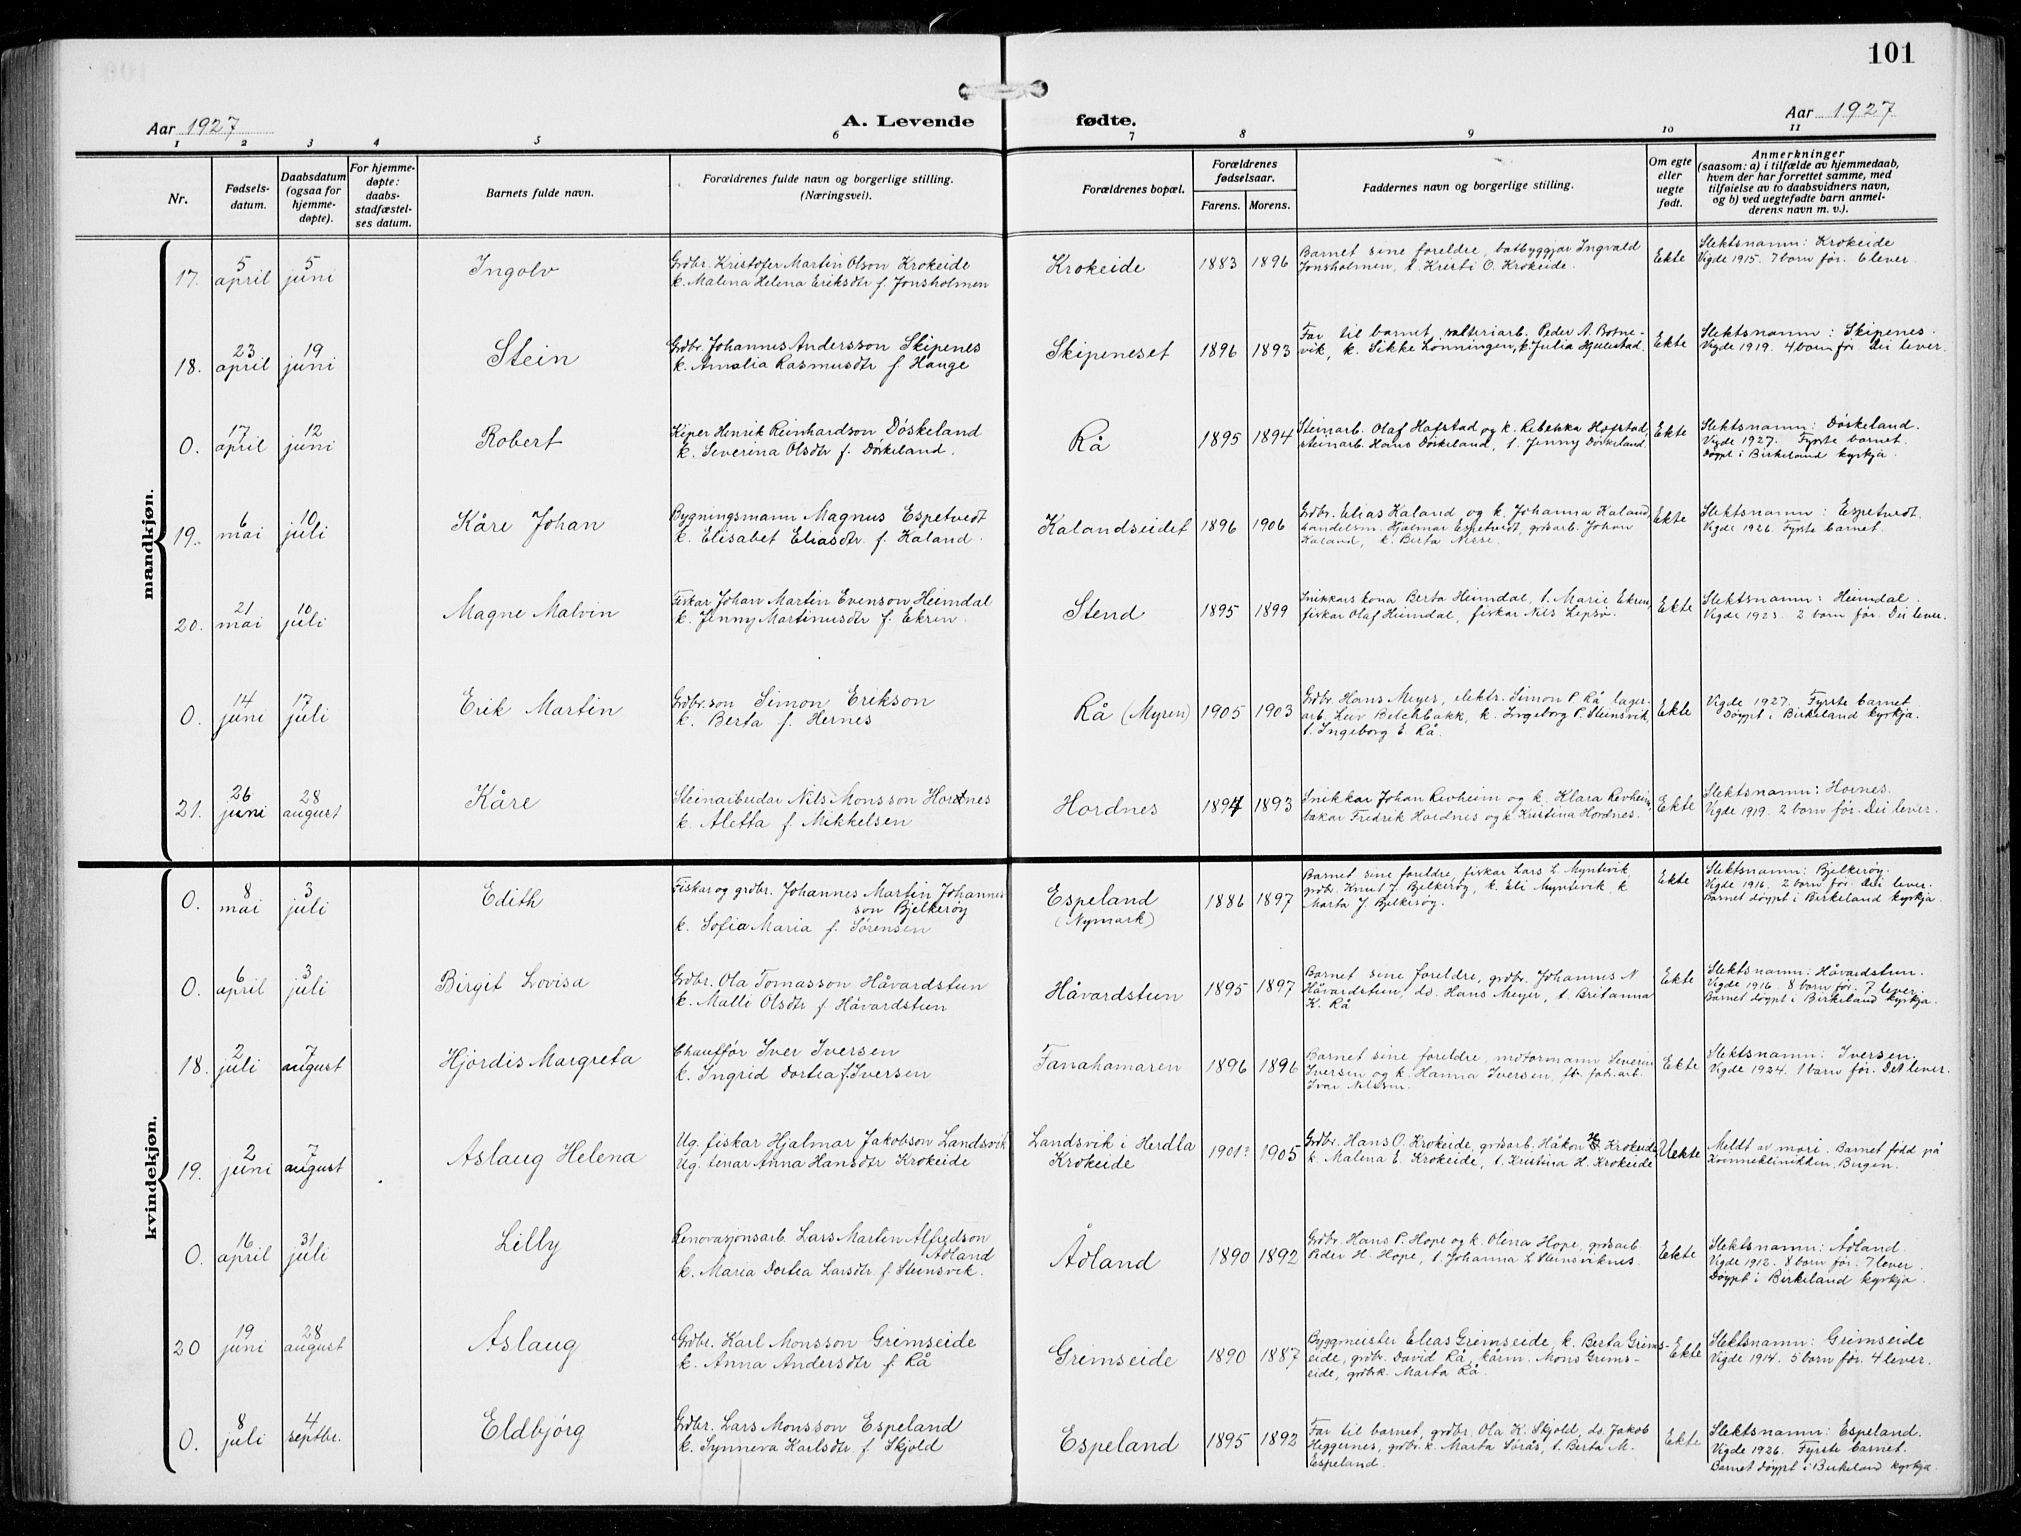 101
Aar 1927
A. Levende fødte.
Aar 1927
1 2 3 4 5 6 7 8 9 10 11
Nr.
Fødsels-
datum.
Daabsdatum
(ogsaa for
hjemme-
døpte).
For hjemme-
døpte:
daabs-
stadfæstel-
ses datum.
Barnets fulde navn.
Forældrenes fulde navn og borgerlige stilling.
(Næringsvei).
Forældrenes bopæl.
Forældrenes
fødselsaar.
Farens.
Morens.
Faddernes navn og borgerlige stilling.
Om egte
eller
uegte
født.
Anmerkninger
(saasom: a) i tilfælde av hjemmedaab,
hvem der har forrettet samme, med
tilføielse av to daabsvidners navn,
og b) ved uegtefødte barn anmel-
derens navn m. v.).
mandkjøn.
17.
5
april
5
juni
Ingolv
Grdbr. Kristofer Martin Olson Krokeide
k. Malena Helena Eriksdtr f. Jonsholmen
Krokeide
1883
1896
Barnet sine foreldre, batbyggjar Ingvald
Jonsholmen, t. Kristi O. Krokeide.
Ekte
Slektsnamn: Krokeide
Vigde 1915. 7 born før. 6 lever.
18.
23
april
19
juni
Stein
Grdbr. Johannes Andersson Skipenes
k. Amalia Rasmusdtr f. Hauge
Skipeneset
1896
1893
Far til barnet, salteriarb. Peder A. Botne-
vik, k. Sikke Lønningen, k. Julia Hjellestad.
Ekte
Slektsnamn: Skipenes.
Vigde 1919. 4 born før Dei lever.
0.
17
april
12
juni
Robert
Kiper Henrik Reinhardson Døskeland
k. Severina Olsdtr f. Døskeland.
Rå
1895
1894
Steinarb. Olaf Hafstad og k. Rebekka Hafstad,
steinarb. Hans Døskeland, t. Jenny Døskeland
Ekte
Slektsnamn: Døskeland.
Vigde 1927. Fyrste barnet.
Døypt i Birkeland kyrkja.
19.
6
mai
10
juli
Kåre Johan
Bygningsmann Magnus Espetvedt
k. Elisabet Eliasdtr. f. Kaland.
Kalandseidet
1896
1906
Grdbr. Elias Kaland og k. Johanna Kaland,
handelsm. Hjalmar Espetvedt, grdsarb. Johan
Kaland, k. Berta Nesse.
Ekte
Slektsnamn: Espetvedt.
Vigde 1926. Fyrste barnet.
20.
21
mai
10
juli
Magne Malvin
Fiskar Johan Martin Evenson Heimdal
k. Jenny Martinusdtr f. Ekren.
Stend
1895
1899
Snikkars kona Berta Heimdal, t. Marie Ekren,
fiskar Olaf Heimdal, fiskar Nils Lepsø.
Ekte
Slektsnamn: Heimdal.
Vigde 1923. 2 born før. Dei lever.
0.
14
juni
17
juli
Erik Martin
Grdbr.son Simon Erikson
k. Berta f. Hernes
Rå (Myren)
1905
1903
Grdbr. Hans Meyer, elektr. Simon P. Rå, lager-
arb. Leiv Beichbakk, k. Ingeborg P. Steinsvik,
t. Ingeborg E. Rå.
Ekte
Vigde 1927. Fyrste barnet
Døypt i Birkeland kyrkja.
21.
26
juni
28
august
Kåre
Steinarbeidar Nils Monsson Hordnes
k. Aletta f. Mikkelsen
Hordnes
1894
1893
Snikkar Johan Revheim og k. Klara Revheim,
bakar Fredrik Hordnes og k. Kristina Hordnes.
Ekte
Slektsnamn: Hornes.
Vigde 1919. 2 born før. Dei lever.
kvindekjøn.
0.
8
mai
3
juli
Edith
Fiskar og grdbr. Johannes Martin Johannes-
son Bjelkerøy
k. Sofia Maria f. Sørensen
Espeland
(Nymark)
1886
1897
Barnet sine foreldre, fiskar Lars L. Myntevik,
grdbr. Knut J. Bjelkerøy, k. Eli Myntevik, k
Marta J. Bjelkerøy.
Ekte
Slektsnamn: Bjelkerøy.
Vigde 1916. 2 born før. Dei lever.
Barnet døypt i Birkeland kyrkja.
0.
6
april
3
juli
Birgit Lovisa
Grdbr. Ola Tomasson Håvardstun
k. Malli Olsdtr f Håvardstun
Håvardstun
1895
1897
Barnet sine foreldre, grdbr. Johannes N
Håvardstun, do. Hans Meyer, t. Britanna
K. Rå
Ekte
Slektsnamn: Håvardstun.
Vigde 1916. 8 born før. 7 lever.
Barnet døypt i Birkeland kyrkja.
18.
2
juli
7
august
Hjørdis Margreta
Chauffør Iver Iversen
k. Ingrid Dortea f. Iversen
Fanahamaren
1896
1896
Barnet sine foreldre, motormann Severin
Iversen og k. Hanna Iversen, arb.
Ivar Nilsen.
Ekte
Slektsnamn: Iversen.
Vigde 1924. 1 born før. Det lever.
19.
2
juni
7
august
Aslaug Helena
Ug. fiskar Hjalmar Jakobson Landsvik
Ug. tenar Anna Hansdtr Krokeide
Landsvik i Herdla
Krokeide
1901?
1905
Grdbr. Hans O. Krokeide, grdsarb. Håkon H. Krokeide
k. Malena E. Krokeide, t. Kristina H. Krokeide
Uekte
Meldt av mori. Barnet fødd på
Kvinneklinikken, Bergen.
0.
16
april
31
juli
Lilly
Renovasjonsarb. Lars Martin Alfredson
Ådland
k. Maria Dortea Larsdtr f. Steinsvik.
Ådland
1890
1892
Grdbr. Hans P. Hope og k. Olena Hope, grdsarb
Peder H. Hope, t. Johanna L Steinsviknes.
Ekte
Slektsnamn: Ådland.
Vigde 1912. 8 born før. 7 lever.
Døypt i Birkeland kyrkja.
20
19
juni
28
august
Aslaug
Grdbr. Karl Monsson Grimseide
k. Anna Andersdtr f. Rå
Grimseide
1890
1887
Byggmeister Elias Grimseide, k. Berta Grims-
eide, grdbr. David Rå, kårm. Mons Grims-
eide, grdbrk. Marta Rå.
Ekte
Slektsnamn: Grimseide
Vigde 1914. 5 born før. 4 lever.
0.
8
juli
4
septbr.
Eldbjørg
Grdbr. Lars Monsson Espeland
k. Synneva Karlsdtr f. Skjold
Espeland
1895
1892
Far til barnet, grdbr. Ola K. Skjold, do. Jakob
Heggernes, grdbr.k. Marta Sørås, t. Berta M.
Espeland.
Ekte
Slektsnamn: Espeland.
Vigde 1926. Fyrste barnet.
Barnet døypt i Birkeland kyrkja.